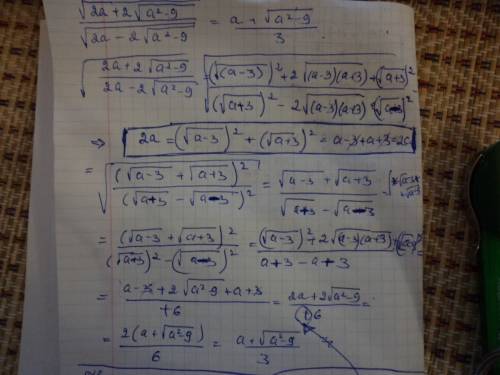 √(2a+2√(a²-9)) / √(2a-2√(a²-9)) = (a+√(a²-9))/3
√((2a+2√(a²-9))/(2a-2√(a²-9))) = √(((√(a-3))²+2√((a-3)(a+3))+(√(a+3))²)/((√(a+3))²-2√((a-3)(a+3))+(√(a-3))²))
⇒ 2a=(√(a-3))²+(√(a+3))²=a-3+a+3=2a
= √((√(a-3)+√(a+3))²/(√(a+3)-√(a-3))²) = (√(a-3)+√(a+3))/(√(a+3)-√(a-3))
= (√(a-3)+√(a+3))²/((√(a+3))²-(√(a-3))²) = ((√(a-3))²+2√((a-3)(a+3))+(√(a+3))²)/(a+3-a+3) =
= (a-3+2√(a²-9)+a+3)/+6 = (2a+2√(a²-9))/+6 =
= 2(a+√(a²-9))/6 = (a+√(a²-9))/3